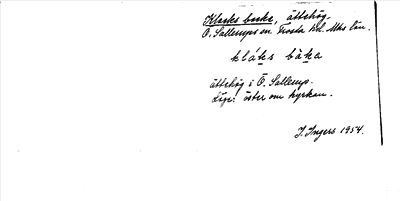 Klacks backe, ättehög.
Ö. Sallerups sn. Frosta hd. Mhs län.
klák̲s bàk̲a
ättehög i Ö. Sallerup.
Läge: öster om kyrkan.
I. Ingers 1954.